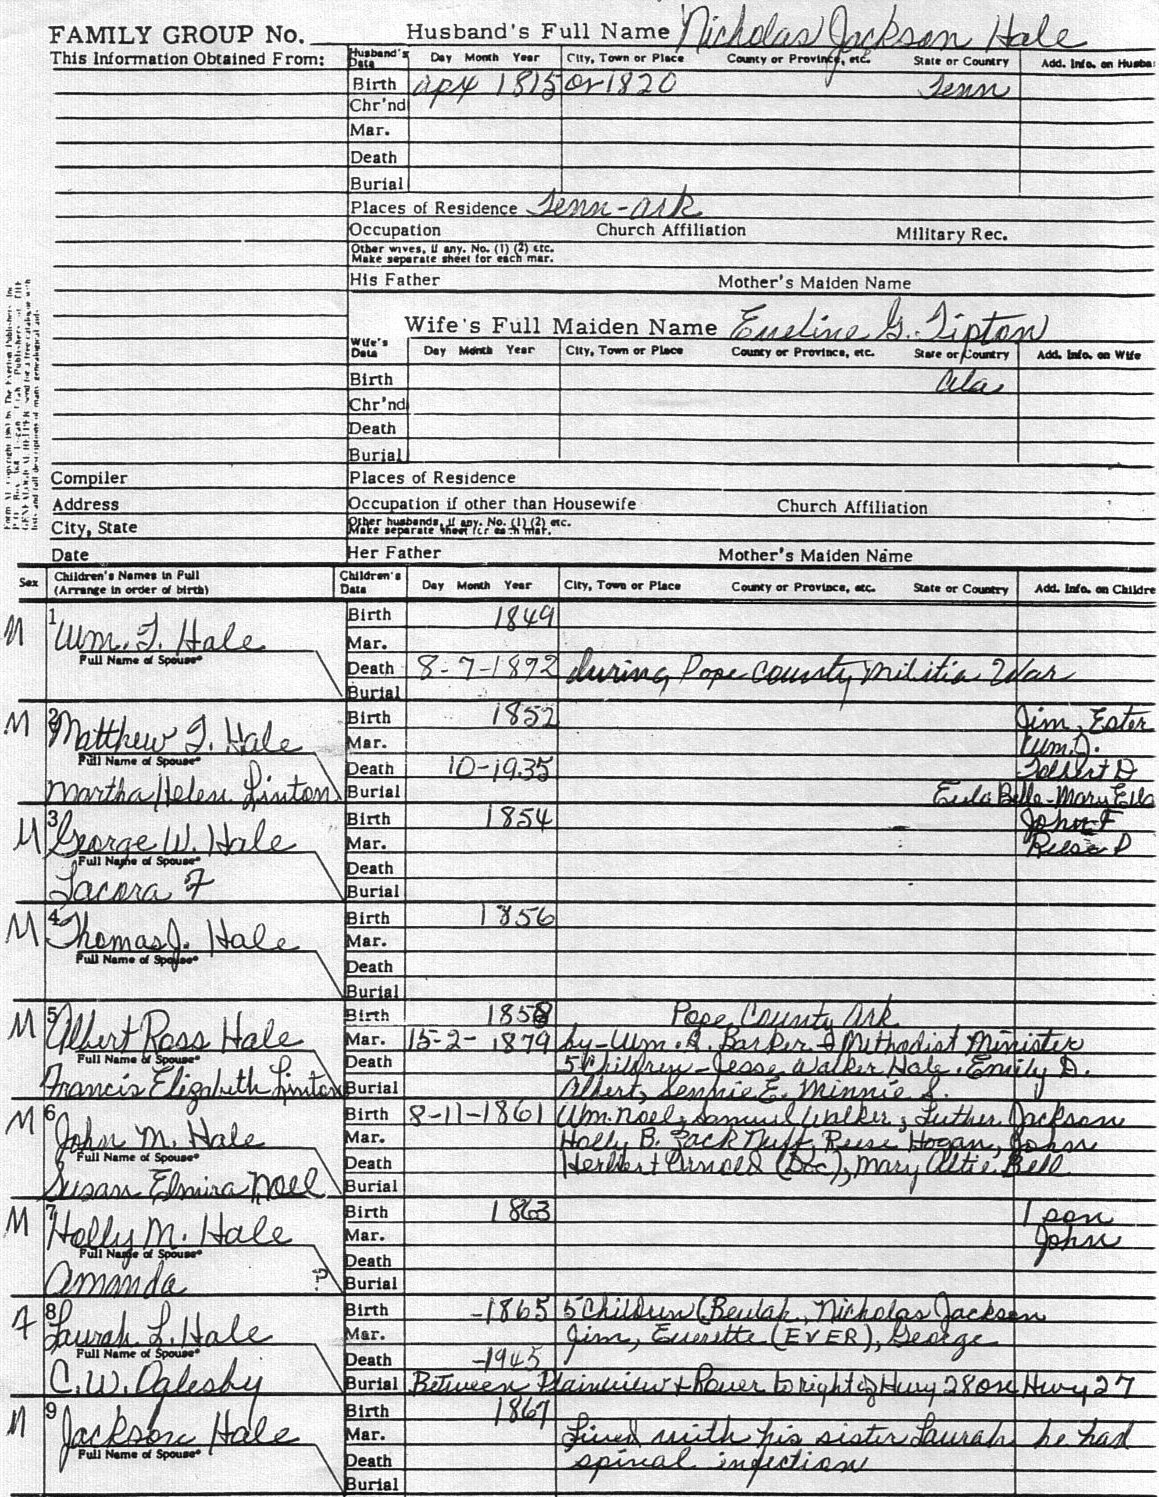 FAMILY GROUP No.
Husband's Full Name Nicholas Jackson Hale
This Information Obtained From:
Husband's Data Day Month Year City, Town or Place County or Province, etc. State or Country Add. Info. on Husba
Birth apx 1815 or 1820 Tenn
Chr'nd
Mar.
Death
Burial
Places of Residence Tenn-Ark
Occupation Church Affiliation Military Rec.
Other wives, if any. No. (1) (2) etc.
Make separate sheet for each mar.
His Father Mother's Maiden Name
Wife's Full Maiden Name Emeline G. Tipton
Wife's Data Day Month Year City, Town or Place County or Province, etc. State or Country Add. Info. on Wife
Birth Ala
Chr'nd
Death
Burial
Compiler Places of Residence
Address Occupation if other than Housewife Church Affiliation
City, State Other husbands, if any. No. (1) (2) etc.
Make separate sheet for each mar.
Date Her Father Mother's Maiden Name
Sex Children's Names in Full
(Arrange in order of birth)
Children's Data Day Month Year City, Town or Place County or Province, etc. State or Country Add. Info. on Childre
M 1 Wm. T. Hale Birth 1849
Full Name of Spouse* Mar.
Death 8-7-1872 during Pope County Militia War
Burial
M 2 Matthew T. Hale Birth 1852 Jim, Ester
Full Name of Spouse* Mar. Wm. J.
Death 10-1935 Tolbert D
Martha Helen Linton Burial Eula Belle-Mary Ella
M 3 George W. Hale Birth 1854 John F
Full Name of Spouse* Mar. Reese P
Death
Lacora F Burial
M 4 Thomas J. Hale Birth 1856
Full Name of Spouse* Mar.
Death
Burial
M 5 Albert Ross Hale Birth 1858 Pope County Ark
Full Name of Spouse* Mar. 15-2-1879 by-Wm. A. Barker Methodist Minister
Death 5 Children-Jesse Walker Hale, Emily D.
Francis Elizabeth Linton Burial Albert, Sennie E. Minnie S.
M 6 John M. Hale Birth 8-11-1861 Wm. Noel, Samuel Walker, Luther Jackson
Full Name of Spouse* Mar. Holly B. Zack Neff, Reese Hogan, John
Death Herbert Arnold (Doc), Mary Altie Bell
Susan Elmira Noel Burial
M 7 Holly M. Hale Birth 1863 1 son
Full Name of Spouse* Mar. John
Death
Amanda ? Burial
F 8 Laurah L. Hale Birth -1865 5 Children (Beulah, Nicholas Jackson
Full Name of Spouse* Mar. Jim, Everette (EVER), George
Death -1945
C.W. Oglesby Burial Between Plainview + Rover to right of Hwy 28 on Hwy 27
M 9 Jackson Hale Birth 1867
Full Name of Spouse* Mar. Lived with his sister Laurah he had
Death spinal infection
Burial